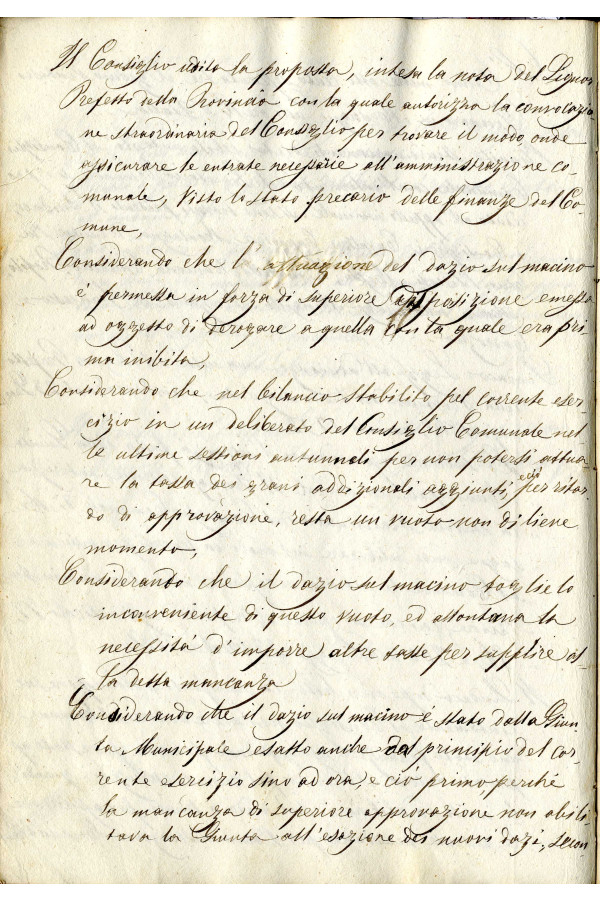 Il Consiglio udita la proposta, intesa la nota del Signor
Prefetto della Provincia con la quale autorizza la convocazio-
ne straordinaria del Consiglio per trovare il modo, onde
assicurare le entrate necessarie all'amministrazione co-
munale, Visto lo stato precario delle finanze del Co-
mune,
Considerando che l'attuazione del dazio sul macino
è permessa in forza di superiore disposizione emessa
ad oggetto di derogare a quella con la quale era pri
ma inibita,
Considerando che nel bilancio stabilito pel corrente eser-
cizio in un deliberato del Consiglio Comunale nel
le ultime sessioni autunnali per non potersi attua
re la tassa dei grani addizionali aggiunti, e ciò per ritar-
do di approvazione, resta un vuoto non di liene
momento,
Considerando che il dazio sul macino toglie lo
inconveniente di questo vuoto, ed allontana la
necessità d'imporre altre tasse per supplire al
la detta mancanza
Considerando che il dazio sul macino è stato dalla Giun
ta Municipale esatto anche dal principio del cor
rente esercizio sino ad ora, e ciò primo perchè
la mancanza di superiore approvazione non abili
tava la Giunta all'esazione dei nuovi dazi, secon